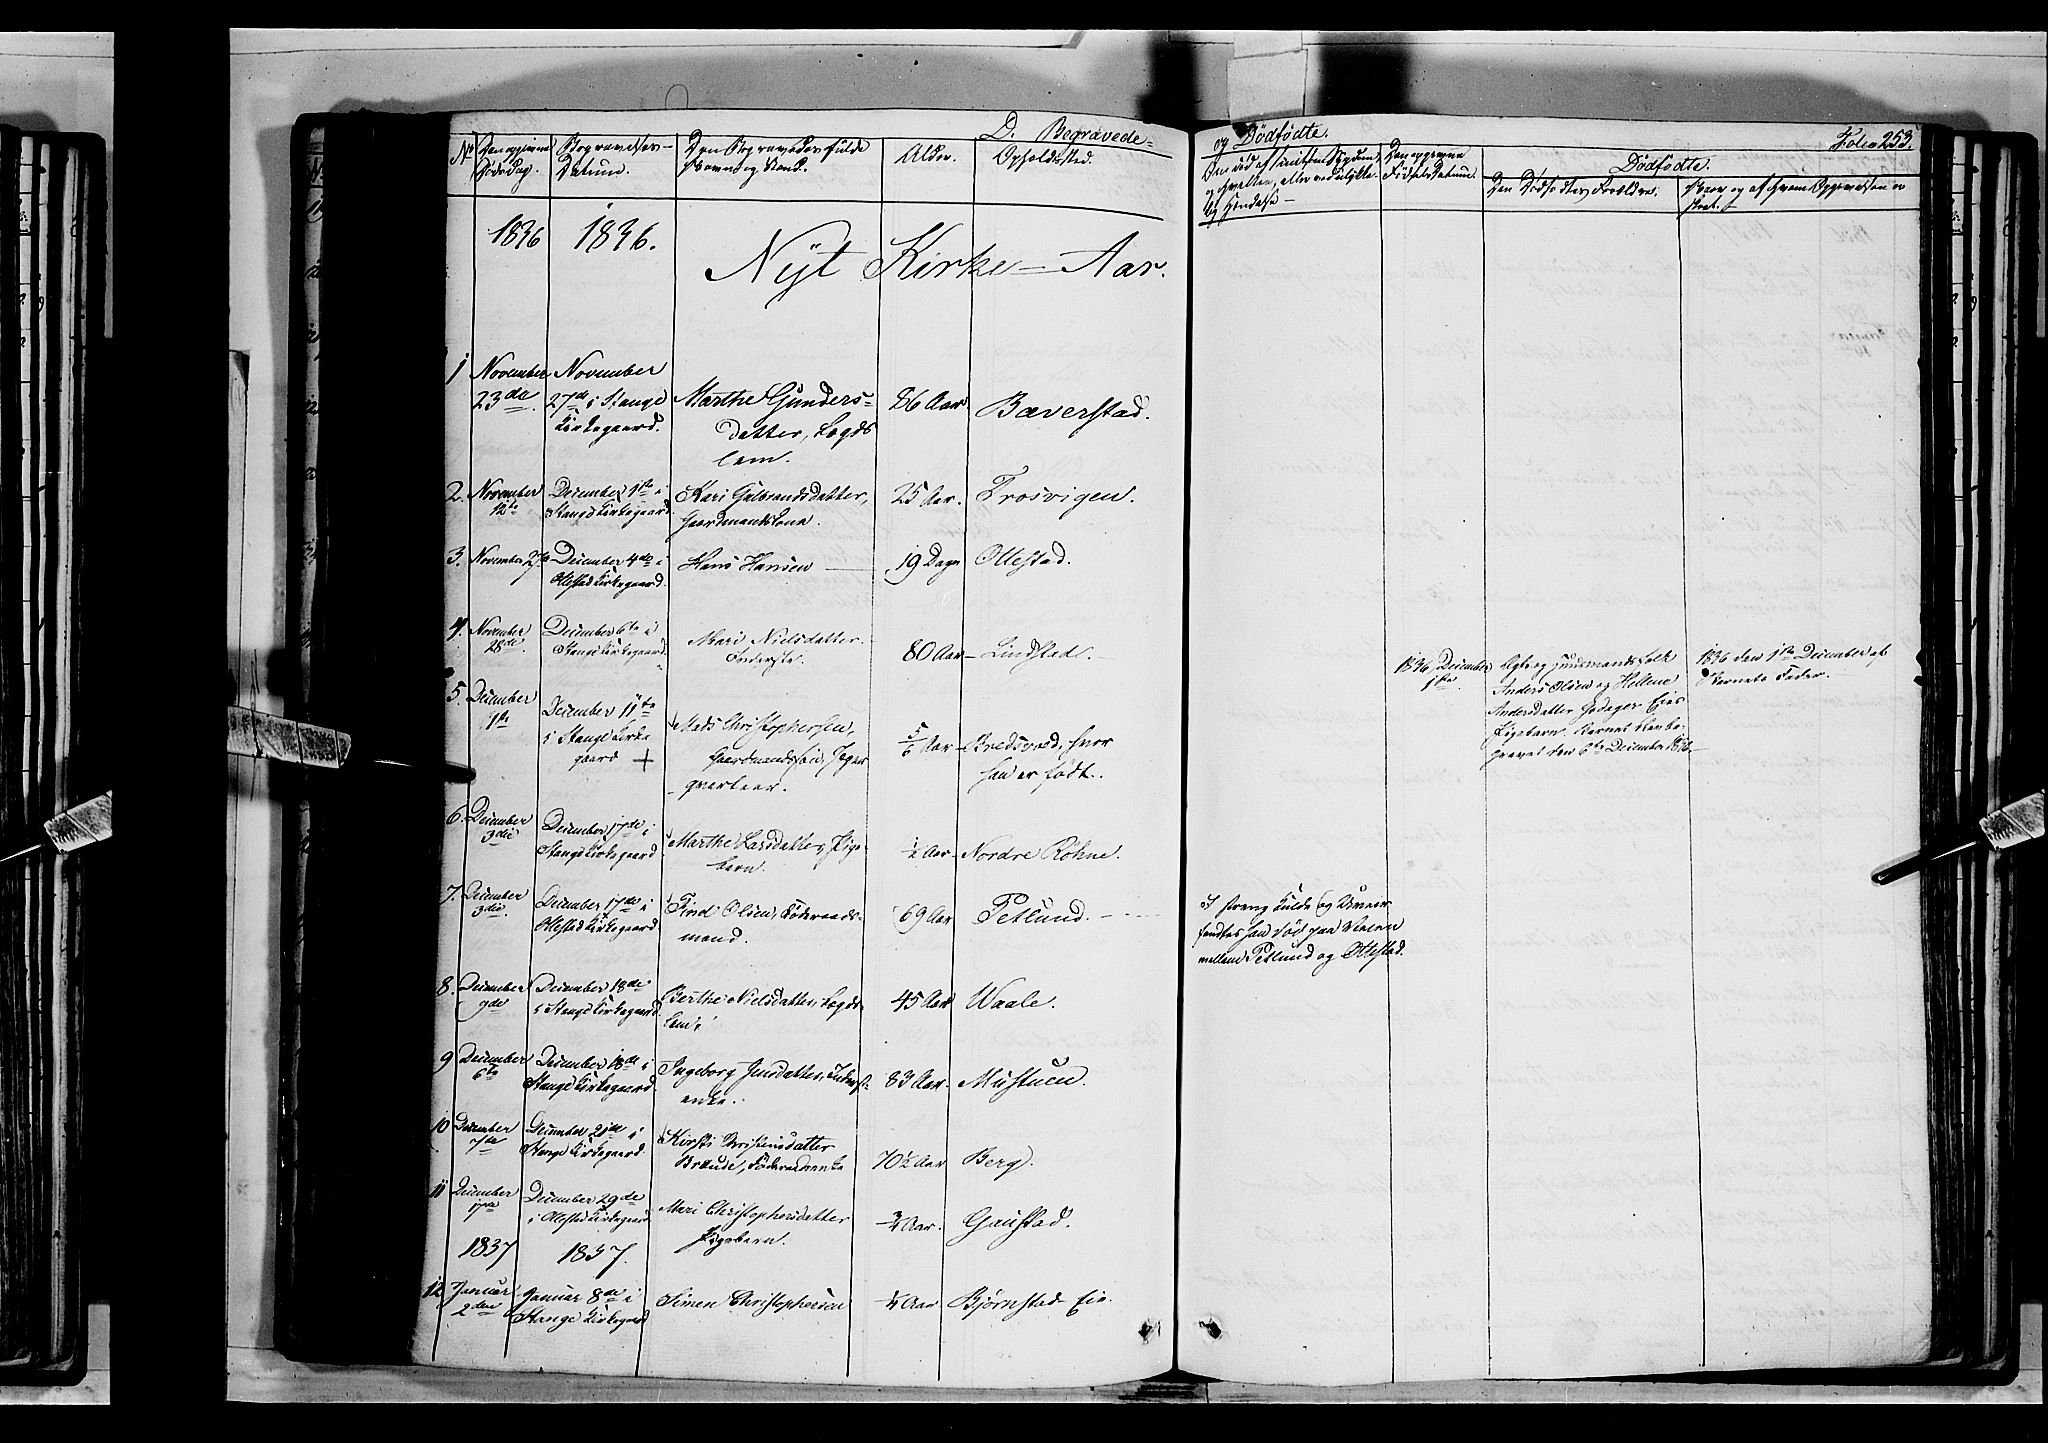 D. Begravede
og Dødfødte.
Folio 253.
No
Den opgivne Dødsdag.
Begravelses-Datum.
Den Begravedes fulde Navn og Stand.
Alder.
Opholdssted.
Den opgivne Fødsels Datum
Dødfødte.
Den Dødfødtes Forældre.
Naar og af hvem Opgivelsen er skeet.
1836 1836.
Nyt Kirke-Aar.
1 November 23de November 27de i Stange Kirkegaard. Marthe Gunders-datter, Lægds lem. 86 Aar Bæverstad.
2. November 12te December 1ste i Stange Kirkegaard. Kari Gulbrandsdatter, Gaardmandskone. 25 Aar. Frosvigen.
3. November 27de December 4de i Ottestad Kirkegaard. Hans Hansen 19 Dage Ottestad.
4. November 28de. December 6te i Stange Kirkegaard. Mari Nielsdatter Inderste. 80 Aar Lindstad.
1836, December 1ste. Ægte og Huusmandsfolk Anders Olsen og Hellene Andersdatter Godager Eies Pigebarn. Barnet blev be-gravet den 6te December 1836. 1836 den 1ste December af Barnets Fader.
5. December 1ste December 11te i Stange Kirke gaard + Mads Christophersen, Gaardmandssøn, 5/6 Aar Bredsvold, hvor han er født.
6. December 3die December 17de i Stange Kirkegaard Marthe Larsdatter, Pige-barn. 1/2 Aar Nordre Røhne.
7. December 3die. December 17de i Ottestad Kirkegaard Find Olsen, Føderaads-mand. 69 Aar Petlund.
I streng Kulde og Uveir fandtes han død paa Veien mellem Petlund og Ottestad.
8. December 9de December 18de i Stange Kirkegaard. Berthe Nielsdatter, Lægds-lem. 45 Aar Waale.
9 December 6te December 18de i Stange Kirkegaard. Ingeborg Jensdatter, Inderst-enke. 83 Aar. Mustuen.
10 December 7de December 21de i Stange Kirkegaard. Kirsti Christensdatter Braude, Føderaadsenke 70 1/2 Aar Berg.
11 December 17de December 29de i Ottestad Kirkegaard. Mari Christophersdatter Pigebarn. 3/4 Aar. Gaustad.
1837 1837.
12 Januar 2den Januar 8de i Stange Kirkegaard Simen Christophersen 1/4 Aar Bjørnstad Eie.